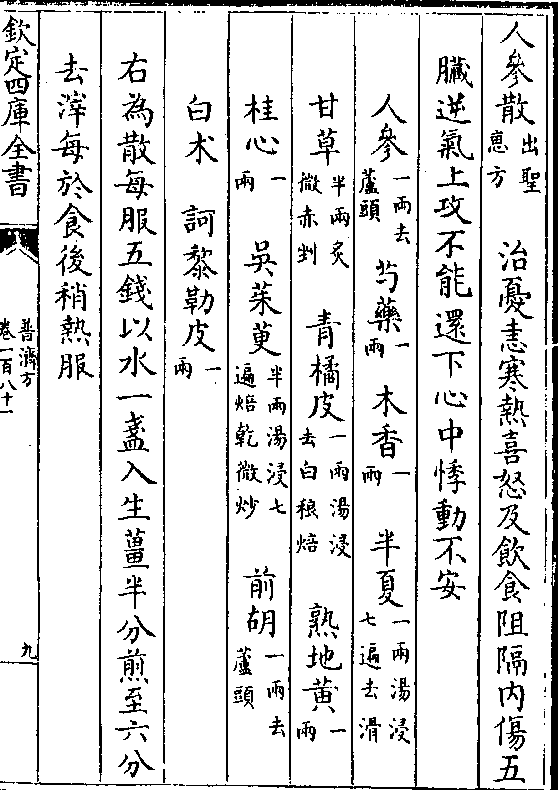 人參散出聖惠方　治憂恚寒熱喜怒及飲食阻隔内傷五
臟逆氣上攻不能還下心中悸動不安
人參一兩去蘆頭　芍藥一兩　木香一兩　半夏一兩湯浸七遍去滑
甘草半兩炙微赤剉　青橘皮一兩湯浸去白穰焙　熟地黄一兩
桂心一兩　吳茱萸半兩湯浸七遍焙乾微炒　前胡一兩去蘆頭
白术　訶黎勒皮一兩
右為散每服五錢以水一盞入生薑半分煎至六分
去滓每於食後稍熱服
欽定四庫全書
普濟方
卷一百八十一
九